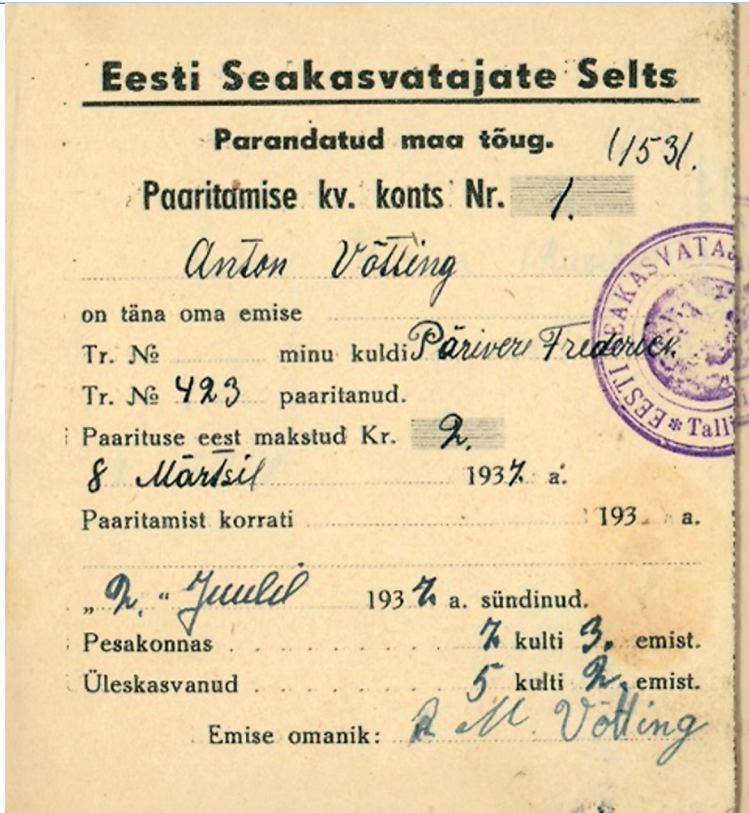 Eesti Seakasvatajate Selts
Parandatud maa tõug.
(153).
Paaritamise kv. konts Nr. 1.
Anton Võtting
on täna oma emise
Tr. № minu kuldi Pärivere Frederick
Tr. № 423 paaritanud.
Paarituse eest makstud Kr. 2.
8 Märtsil 1937. a.
Paaritamist korrati 193 a.
„2.“ Juulil 1937. a. sündinud.
Pesakonnas 7. kulti 3. emist.
Üleskasvanud 5 kulti 2. emist.
Emise omanik: M. Võtting
EESTI SEAKASVATAJ
* Talli